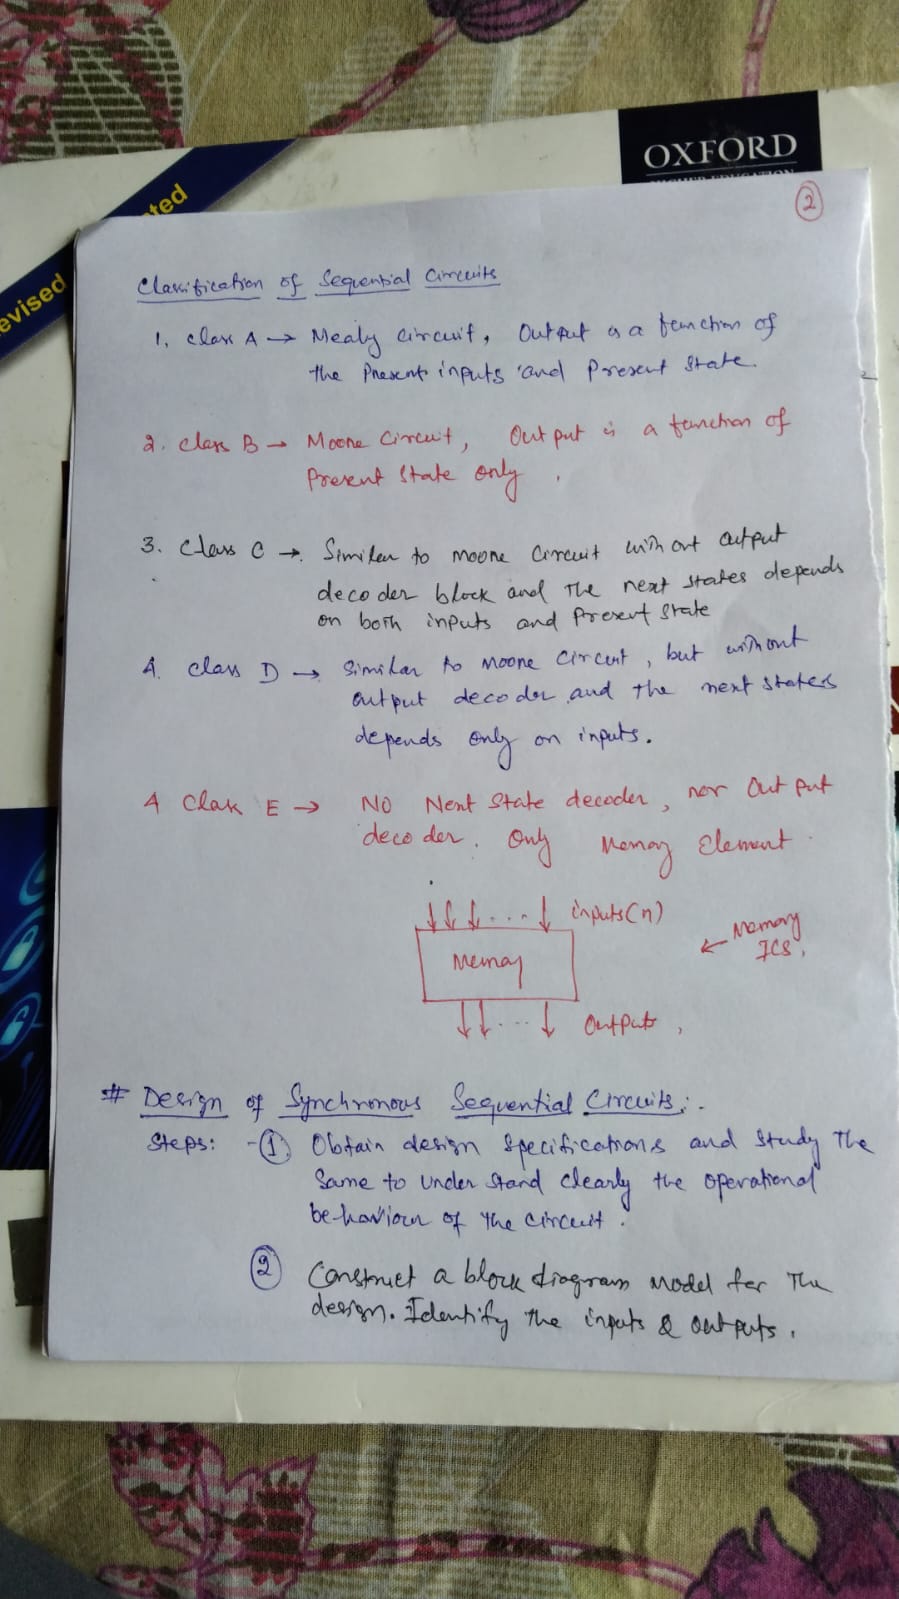 OXFORD
ted
evised
2
Classification of Sequential Circuits
1. Class A → Mealy circuit, Output is a function of
the Present inputs and Present State.
2. Class B → Moore Circuit, Output is a function of
Present State only.
3. Class C → Similar to moore circuit with out output
decoder block and The next states depends
on both inputs and Present State
4. Class D → Similar to Moore Circuit, but without
output decoder and the next states
depends only on inputs.
4 Class E → NO Next State decoder, nor Out put
decoder. Only Memory Element.
... inputs(n)
Memory
← Memory
ICS.
... Outputs,
# Design of Synchronous Sequential Circuits:-
Steps: - 1 Obtain design Specifications and Study The
Same to under stand clearly the operational
be-haviour of the circuit.
2 Construct a block diagram model for The
design. Identify the inputs & outputs.